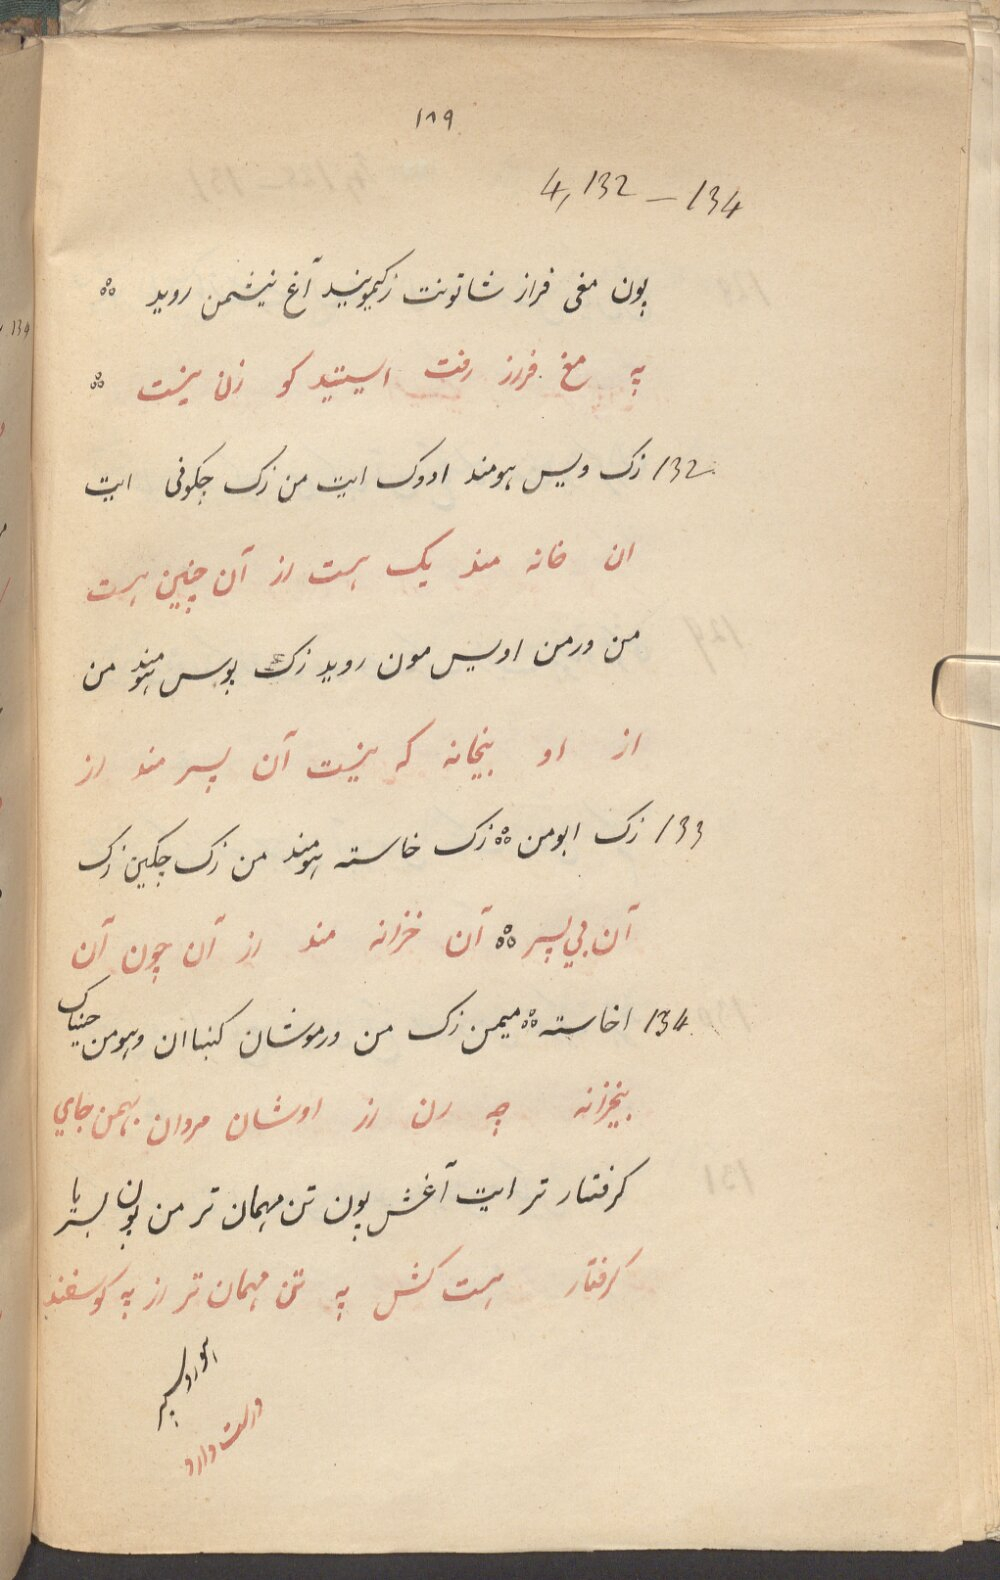 ۱۸۹
4,132 — 134
پون مغی فراز شاتونت زکیمونید آغ نیشمن روید ஃ
په مغ فراز رفت استید کو زن نیست ஃ
132 زک ویس هومند ادوک ایت من زک چکونی ایت
ان خانه مند یک هست از آن چنین هست
من ورمن اویس مون روید زک پوس هومند من
از او بیخانه که نیست آن پسر مند از
133 زک ابومن ஃ زک خاسته هومند من زک چکین زک
آن بی پسر ஃ آن خزانه مند از آن چون آن
134 اخاسته ஃ میمن زک من ورموشان کنباان وهومن جنیاک
بیخزانه چه رن از اوشان مردان بهمن جای
کرفتار تر ایت آغش پون تن مهمان تر من پون بسریا
کرفتار هست کش په تن مهمان تر از په کوسفند
وارد